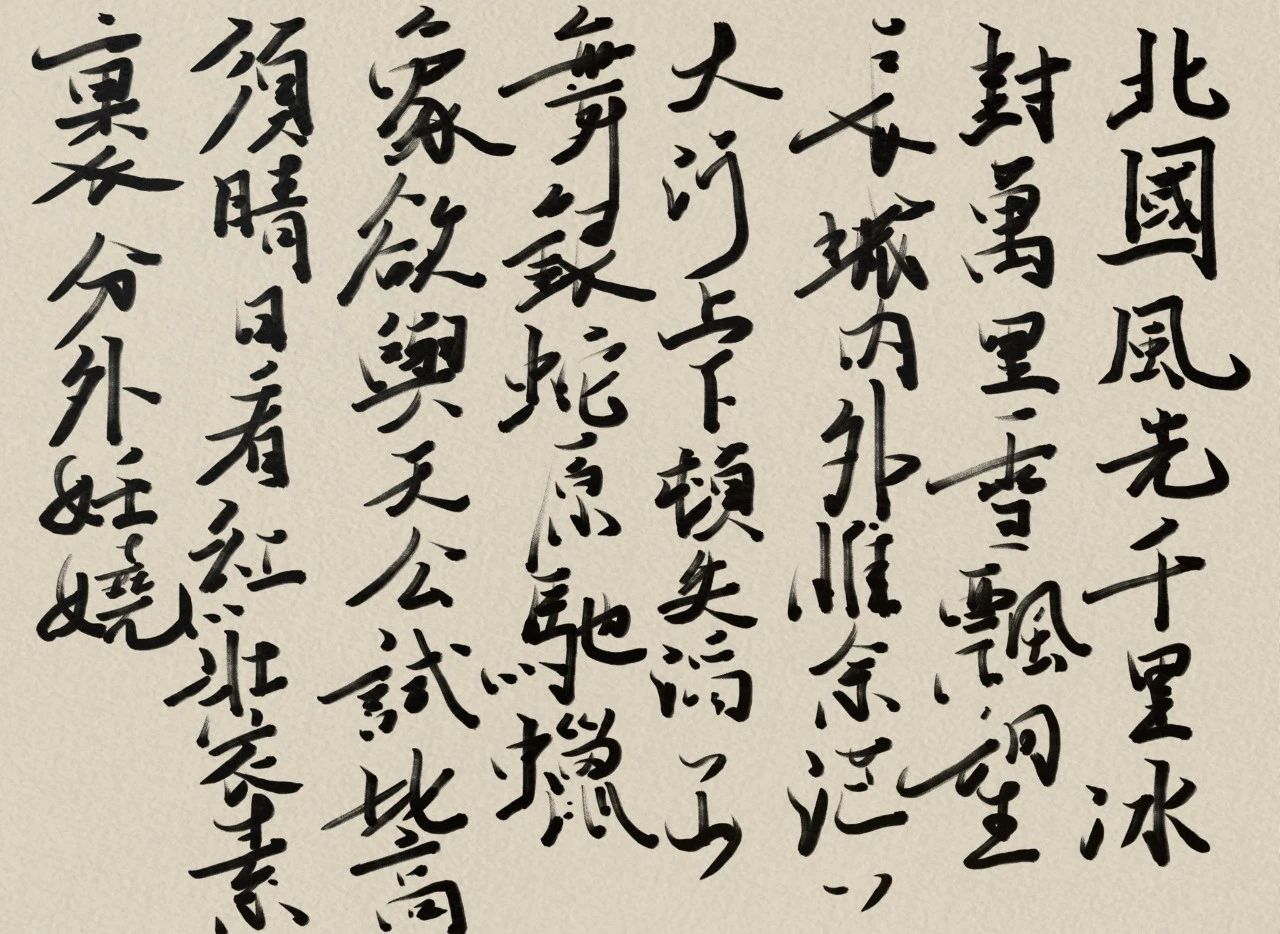 北國風光千里冰
封萬里雪飄望
長城内外惟余茫〻
大河上下頓失滔〻山
舞銀蛇原馳蠟
象欲與天公試比高
須晴日看紅裝素
裹分外妖嬈